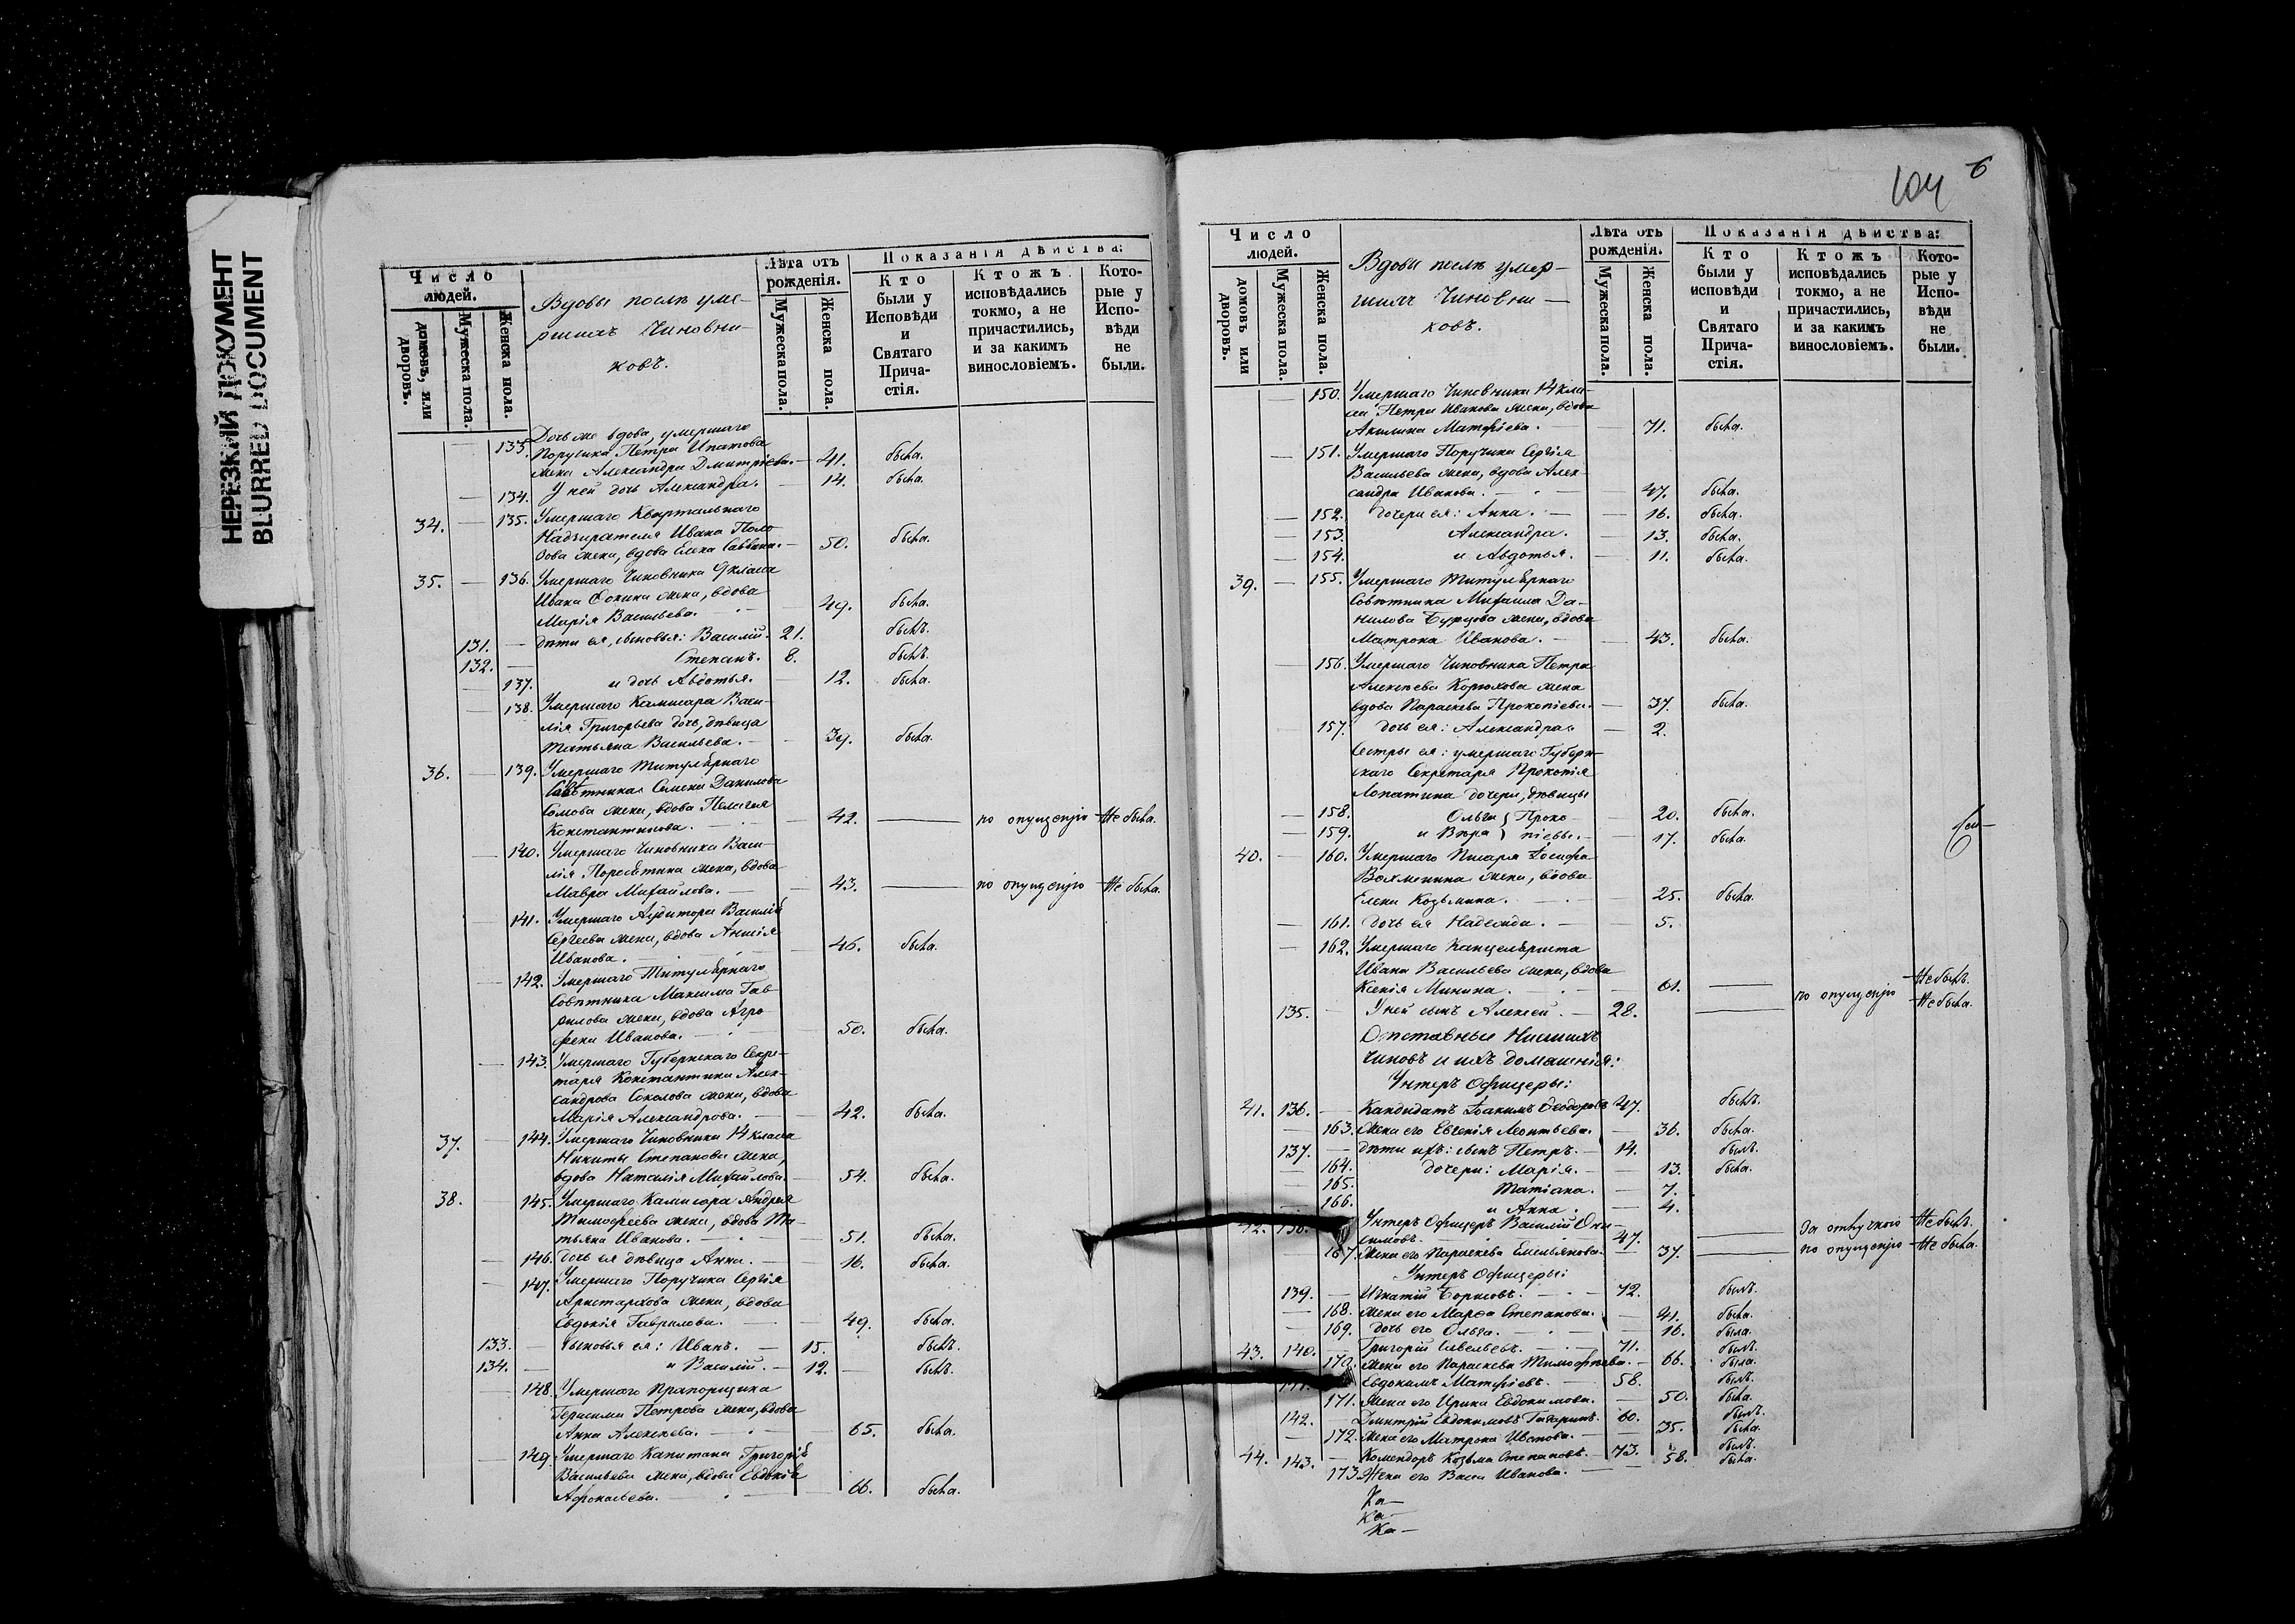 НЕРЕЗКИЙ ДОКУМЕНТ
BLURRED DOCUMENT
Число людей.
домовъ, или дворовъ.
Мужеска пола.
Женска пола.
Вдовы послѣ уме-
ршихъ Чиновни-
ковъ.
Лѣта отъ рожденія.
Мужеска пола.
Женска пола.
Показанія дѣйства:
Кто были у Исповѣди и Святаго Прича-стія.
Ктожъ исповѣдались токмо, а не причастились, и за какимъ винословіемъ.
Кото-рые у Испо-вѣди не были.
133. Дочь же вдова, умершаго
Поручика Петра Ипатова
жена Александра Дмитріева. — 41. была.
— 134. У ней дочь Александра. — 14. была.
34. — 135. Умершаго Квартальнаго
Надзирателя Ивана Поло
зова жена, вдова Елена Саввина. — 50. была.
35. — 136. Умершаго Чиновника 9 класса
Ивана Сокина жена, вдова
Марія Васильева. — 49. была.
131. — дѣти ея, сыновья: Василій. 21. былъ.
132. — Степанъ. 8. былъ.
— 137. и дочь Авдотья. — 12. была.
— 138. Умершаго Камисара Васи-
лія Григорьева дочь, дѣвица
Татьяна Васильева. — 39. была.
36. — 139. Умершаго Титулярнаго
Совѣтника Семена Данилова
Сомова жена, вдова Пелагея
Константинова. — 42. — по опущенію Не была.
— 140. Умершаго Чиновника Васи-
лія жена, вдова
Мавра Михайлова. — 43. — по опущенію Не была.
— 141. Умершаго Аудитора Василія
Сергеева жена, вдова Анисія
Иванова. — 46. была.
— 142. Умершаго Титулярнаго
Совѣтника Максима Гав
рилова жена, вдова Агро
фена Иванова. — 50. была.
— 143. Умершаго Губернскаго Секре-
таря Константина Алек-
сандрова Соколова жена, вдова
Марія Александрова. — 42. была.
37. — 144. Умершаго Чиновника 14 класса
Никиты Степанова жена,
вдова Наталія Михайлова. — 54. была.
38. — 145. Умершаго Камисара Андрея
Тимофеева жена, вдова Та-
тьяна Иванова. — 51. была.
— 146. дочь ея дѣвица Анна. — 16. была.
— 147. Умершаго Поручика Сергія
Аристархова жена, вдова
Евдокія Гаврилова. — 49. была.
133. — сыновья ея: Иванъ. — 15. былъ.
134. — и Василій. — 12. — былъ.
— 148. Умершаго Прапорщика
Герасима Петрова жена, вдова
Анна Алексѣева. — 65. была.
— 149. Умершаго Капитана Григорія
Васильева жена, вдова Евдокія
Афонасьева. — 66. была.
104 6
Число людей.
домовъ или дворовъ.
Мужеска пола.
Женска пола.
Вдовы послѣ умер-
шихъ Чиновни-
ковъ.
Лѣта отъ рожденія.
Мужеска пола.
Женска пола.
Показанія дѣйства:
Кто были у исповѣди и Святаго Прича-стія.
Ктожъ исповѣдались токмо, а не причастились, и за какимъ винословіемъ.
Кото-рые у Испо-вѣди не были.
— 150. Умершаго Чиновника 14 кла-
са Петра Иванова жена, вдова
Акилина Матфіева. — 71. была.
— 151. Умершаго Поручика Сергія
Васильева жена, вдова Алек-
сандра Иванова. — 47. была.
— 152. дочери ея: Анна. — 16. была.
— 153. Александра. — 13. была.
— 154. и Авдотья. — 11. была.
39. — 155. Умершаго Титулярнаго
Совѣтника Михаила Да-
нилова Бурцова жена, вдова
Матрона Иванова. — 43. была.
— 156. Умершаго Чиновника Петра
Алексѣева Корюхова жена
вдова Параскева Прокопіева. — 37. была.
— 157. дочь ея: Александра. — 2.
Сестры ея: умершаго Губерн-
скаго Секретаря Прокопія
Лопатина дочери, дѣвицы
— 158. Ольга } Проко- — 20. была.
— 159. и Вѣра } піевы. — 17. была.
40. — 160. Умершаго Писаря Іосифа
жена, вдова
Елена Козьмина. — 25. была.
— 161. дочь ея Надежда. — 5.
— 162. Умершаго Канцеляриста
Ивана Васильева жена, вдова
Ксенія Минина. — 61. — Не былъ.
135. — У ней сынъ Алексей. — 28. — по опущенію Не была.
Отставные Нижнихъ
чиновъ и ихъ домашнія:
Унтеръ Офицеры:
41. 136. — Кандидатъ Іоакимъ Ѳеодоровъ 47. былъ.
— 163. Жена его Евгенія Леонтьева. — 36. была.
137. — дѣти ихъ: сынъ Петръ. — 14. былъ.
— 164. дочери: Марія. — 13. была.
— 165. Татіана. — 7.
— 166. и Анна. — 4.
42. 138. Унтеръ Офицеръ Василій Они-
симовъ. 47. — За отлучкою Не былъ.
167. Жена его Параскева Емельянова. — 37. — по опущенію Не была.
Унтеръ Офицеры:
139. — Игнатій Борисовъ. — 72. былъ.
— 168. Жена его Марѳа Степанова. 41. была.
— 169. дочь его Ольга. — 16. была.
43. 140. — Григорій Савельевъ. — 71. былъ.
170. Жена его Параскева Тимофѣева. — 66. была.
141. Евдокимъ Матфіевъ. — 58. былъ.
171. Жена его Ирина Евдокимова. — 50. была.
142. — Дмитрій Евдокимовъ 60. былъ.
— 172. Жена его Матрона Иванова. — 35. была.
44. 143. — Комендоръ Козьма Степановъ. 73. былъ.
173. Жена его Васса Иванова. — 58. была.
Ка—
Ка—
Ка—